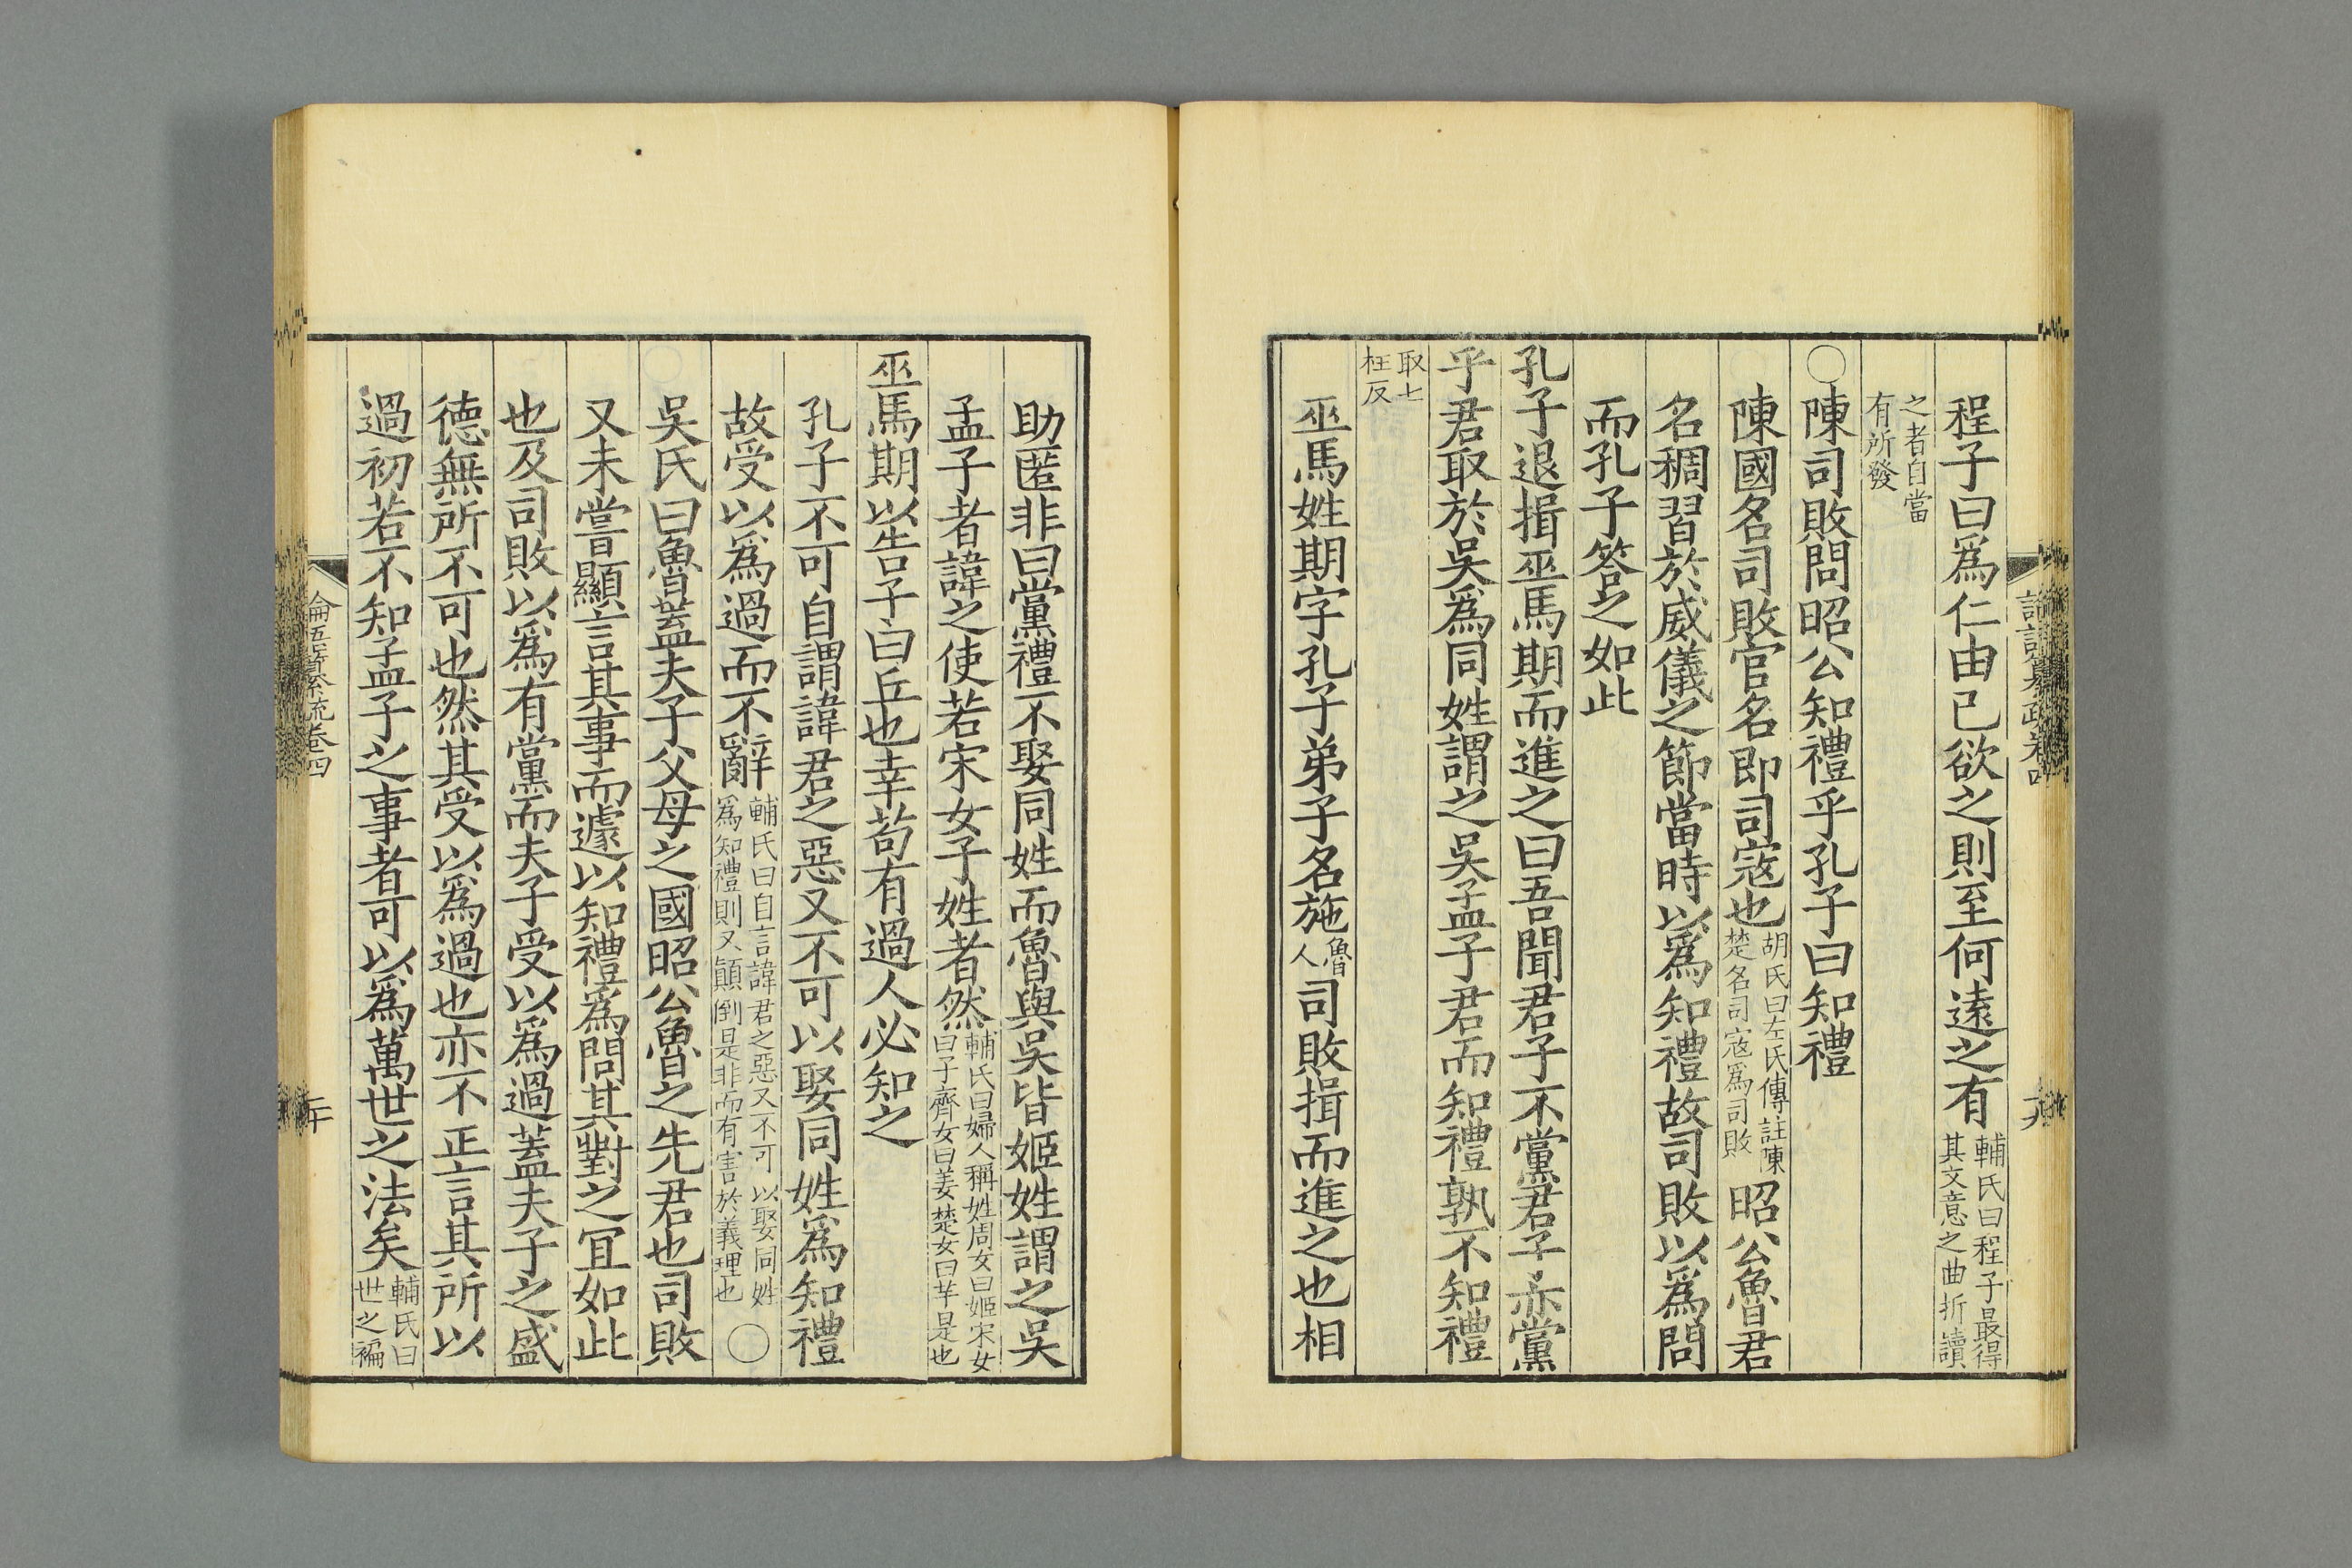 程子曰爲仁由己欲之則至何遠之有輔氏曰程子最得其文意之曲折讀
之者自當有所發
○陳司敗問昭公知禮乎孔子曰知禮
陳國名司敗官名即司寇也胡氏曰左氏傳註陳楚名司寇爲司敗昭公魯君
名稠習於威儀之節當時以爲知禮故司敗以爲問
而孔子答之如此
孔子退揖巫馬期而進之曰吾聞君子不黨君子亦黨
乎君取於吳爲同姓謂之吳孟子君而知禮孰不知禮
取七枉反
巫馬姓期字孔子弟子名施魯人司敗揖而進之也相
助匿非曰黨禮不娶同姓而魯與吳皆姬姓謂之吳
孟子者諱之使若宋女子姓者然輔氏曰婦人稱姓周女曰姬宋女曰子齊女曰姜楚女曰芊是也
巫馬期以告子曰丘也幸苟有過人必知之
孔子不可自謂諱君之惡又不可以娶同姓爲知禮
故受以爲過而不辭輔氏曰自言諱君之惡又不可以娶同姓爲知禮則又顚倒是非而有害於義理也○
吳氏曰魯蓋夫子父母之國昭公魯之先君也司敗
又未嘗顯言其事而遽以知禮爲問其對之宜如此
也及司敗以爲有黨而夫子受以爲過蓋夫子之盛
德無所不可也然其受以爲過也亦不正言其所以
過初若不知孟子之事者可以爲萬世之法矣輔氏曰世之褊
卷四
二十